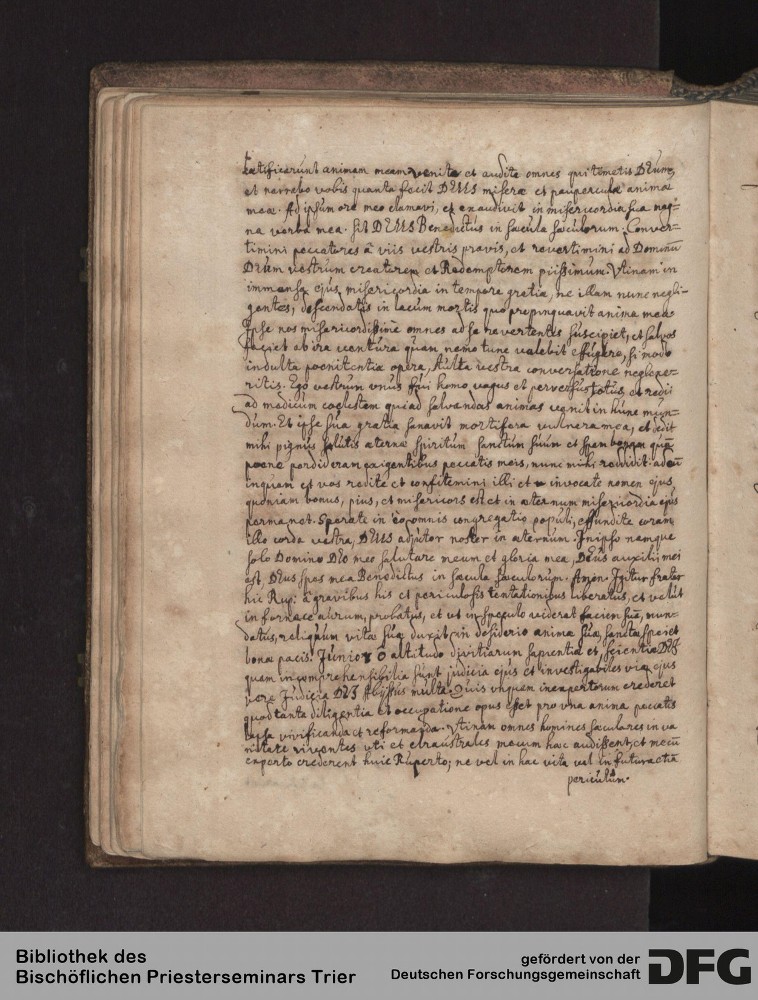 Laetificarunt animam meam venite et audite omnes qui timetis DEum,
et narrabo vobis quanta fecit DEUS miserae et pauperculae animae
meae. Ad ipsum ore meo clamavi, et exaudivit in misericordia sua mag=
na verba mea. Sit DEUS Benedictus in saecula saeculorum. Conver=
timini peccatores à viis vestris pravis, et revertimini ad Dominū
DEum vestrum creatorem et Redemptorem piissimum. Utinam in
immensa ejus misericordia in tempore gratiae, ne illam nunc negli=
gentes, descendatis in lacum mortis quo propinquavit anima mea
Ipse nos misericordissime omnes ad se revertentes suscipiet, et salvos
faciet ab ira ventura quam nemo tunc valebit effugere, si modo
indulta poenitentiae opera, stulta vestra conversatione neglexe=
ritis. Ego vestrum unus fui homo vagus et perversus totus, et redii
ad medicum coelestem qui ad salvandas animas venit in hunc mun=
dum. Et ipse sua gratia sanavit mortifera vulnera mea, et dedit
mihi pignus salutis aeternae spiritum sanctum suum et spem bonam quā
poene perdideram exigentibus peccatis meis, nunc mihi reddidit. ad eū
inquam et vos redite et confitemini illi et invocate nomen ejus
quoniam bonus, pius, et misericors est et in aeternum misericordia ejus
permanet. Sperate in eo omnis congregatio populi, effundite coram
illo corda vestra, DEUS adjutor noster in aeternum. In ipso namque
solo Domino DEO meo salutare meum et gloria mea, DEus auxilii mei
est, DEus spes mea Benedictus in saecula saeculorum. Amen. Igitur frater
hic Rup: à gravibus his et periculosis tentationibus liberatus, et velut
in fornace aurum, probatus, et ut in speculo viderat faciem suā, mun=
datus, reliquum vitae suae duxit in desiderio animae suae, sanctae spei et
bonae pacis. Junior ô altitudo divitiarum sapientiae et scientiae DEI
quam incomprehensibilia sunt judicia ejus et investigabiles viae ejus
vere Judicia DEI Abyssus multa. Quis unquam inexpertorum crederet
quod tanta diligentia et occupatione opus esset pro una anima peccatis
lapsa vivificanda et reformanda. Utinam omnes homines saeculares in va
nitate viventes uti et claustrales mecum haec audissent, et mecū
experto crederent huic Ruperto; ne vel in hac vita vel in futura etiā
periculum.
Bibliothek des
Bischöflichen Priesterseminars Trier
gefördert von der
Deutschen Forschungsgemeinschaft
DFG